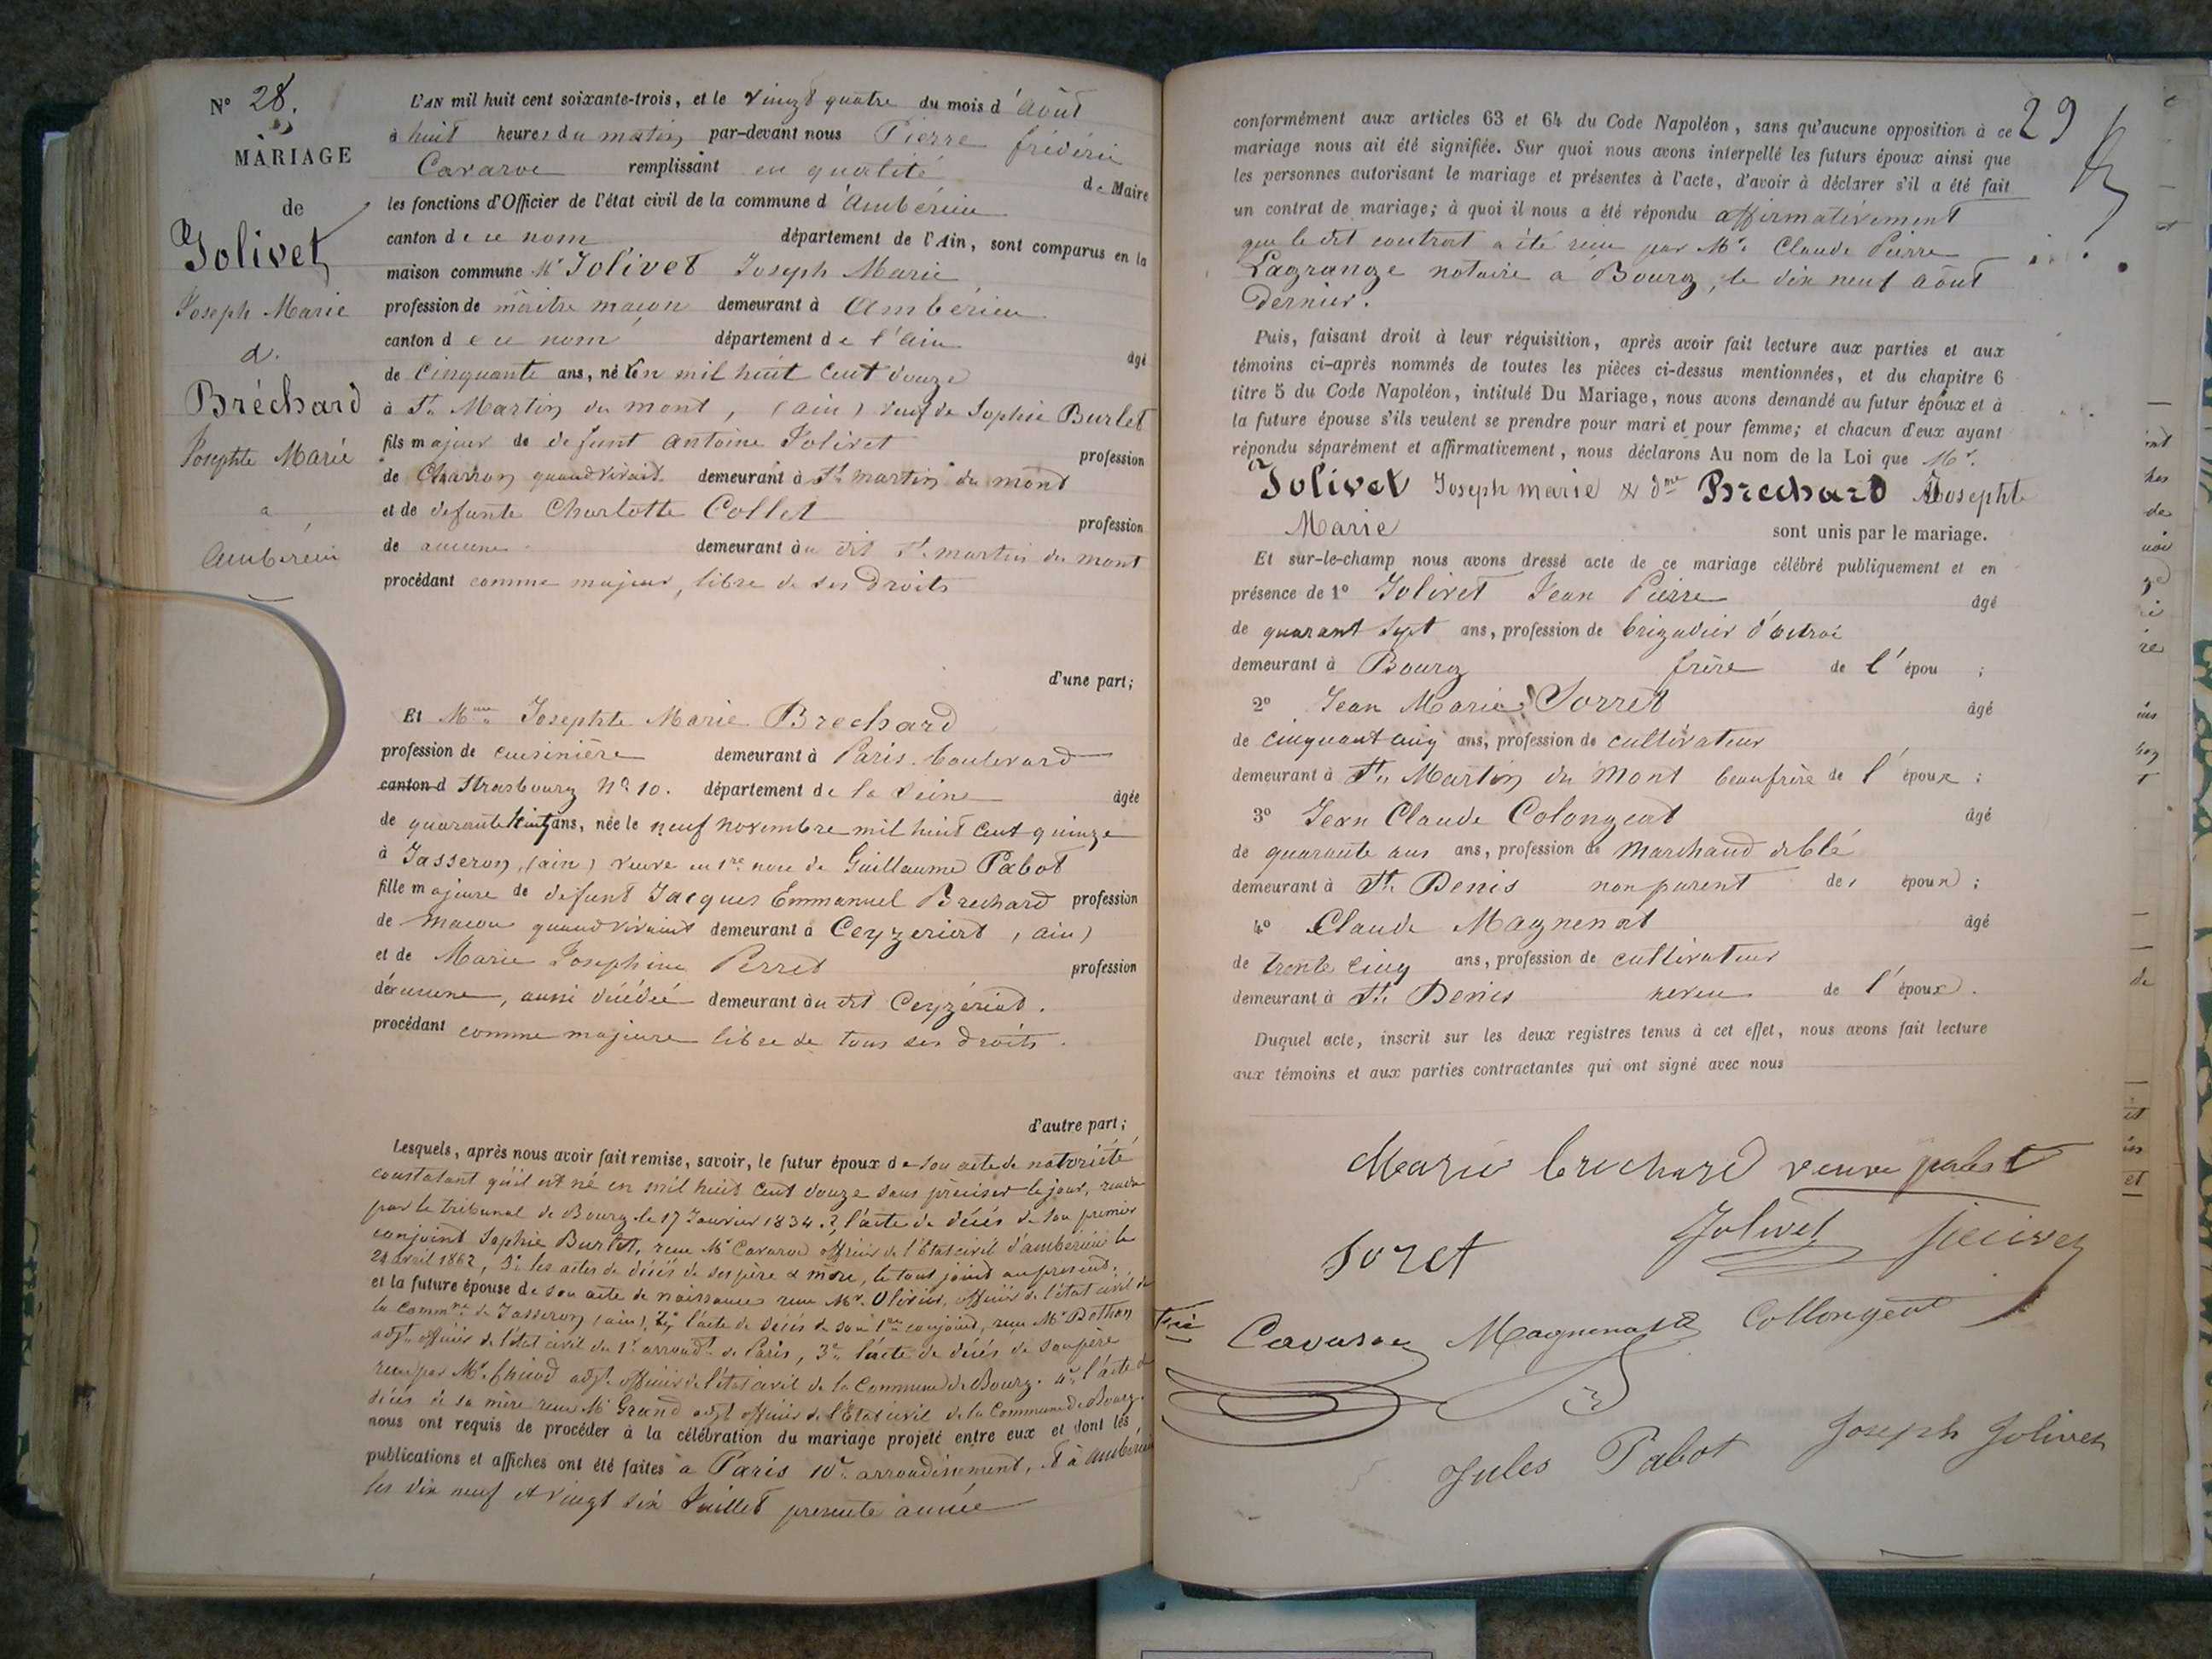 N° 28.
MARIAGE
de
Jolivet
Joseph Marie
&
Bréchard
Josephte Marie
a
Ambérieu
L'AN mil huit cent soixante-trois, et le vingt quatre du mois d'août
à huit heures du matin par-devant nous Pierre frédéric
Cavaroc remplissant en qualité de Maire
les fonctions d'Officier de l'état civil de la commune d'Ambérieu
canton de ce nom département de l'Ain, sont comparus en la
maison commune Mr Jolivet Joseph Marie
profession de maître maçon demeurant à Ambérieu
canton de ce nom département de l'Ain âgé
de cinquante ans, né en mil huit cent douze
à St. Martin du mont, (ain) veuf de Sophie Burlet
fils majeur de defunt Antoine Jolivet profession
de Charron quand vivait demeurant à St martin du mont
et de defunte Charlotte Collet profession
de aucune demeurant au dit St. martin du mont
procédant comme majeur, libre de ses droits
d'une part;
Et Mme Josephte Marie Brechard
profession de cuisinière demeurant à Paris boulevard
canton d Strasbourg No 10. département de la Seine âgée
de quarante huit ans, née le neuf novembre mil huit cent quinze
à Jasseron, (ain) veuve en 1re noce de Guillaume Pabot
fille majeure de défunt Jacques Emmanuel Brechard profession
de maçon quand vivait demeurant à Ceyzeriat (ain)
et de Marie Josephine Perret profession
de aucune, aussi décédée demeurant au dit Ceyzériat.
procédant comme majeure libre de tous ses droits.
d'autre part;
Lesquels, après nous avoir fait remise, savoir, le futur époux de son acte de notoriété
constatant qu'il est né en mil huit cent douze sans préciser le jour, rendu
par le tribunal de Bourg le 17 Janvier 1834. 2° l'acte de décès de son premier
conjoint Sophie Burlet, reçu Mr Cavaroc officier de l'Etat civil d'ambérieu le
24 avril 1862, 3° les actes de décès de ses père & mère, le tout joint au présent.
et la future épouse de son acte de naissance reçu Mr. Olivier, officier de l'état civil de
la Commne de Jasseron (ain), 2° l'acte de décès de son 1er conjoint, reçu Mr Dothan
adjt officier de l'état civil du 1r arrondt de Paris, 3° l'acte de décès de son père
reçu par Mr. adjt officier de l'état civil de la Commune de Bourg. 4° l'acte de
décès de sa mère reçu Mr Grand adjt officier de l'Etat civil de la Commune de Bourg.
nous ont requis de procéder à la célébration du mariage projeté entre eux et dont les
publications et affiches ont été faites à Paris 10e arrondissement, et à ambérieu
les dix neuf et vingt six Juillet presente année
29
conformément aux articles 63 et 64 du Code Napoléon, sans qu'aucune opposition à ce
mariage nous ait été signifiée. Sur quoi nous avons interpellé les futurs époux ainsi que
les personnes autorisant le mariage et présentes à l'acte, d'avoir à déclarer s'il a été fait
un contrat de mariage; à quoi il nous a été répondu affirmativement
que le dit contrat a été reçu par Me. Claude Pierre
Lagrange notaire à Bourg, le dix neuf août
dernier.
Puis, faisant droit à leur réquisition, après avoir fait lecture aux parties et aux
témoins ci-après nommés de toutes les pièces ci-dessus mentionnées, et du chapitre 6
titre 5 du Code Napoléon, intitulé Du Mariage, nous avons demandé au futur époux et à
la future épouse s'ils veulent se prendre pour mari et pour femme; et chacun d'eux ayant
répondu séparément et affirmativement, nous déclarons Au nom de la Loi que Mr.
Jolivet Joseph marie & dme Brechard Josephte
Marie sont unis par le mariage.
Et sur-le-champ nous avons dressé acte de ce mariage célébré publiquement et en
présence de 1° Jolivet Jean Pierre âgé
de quarant sept ans, profession de brigadier d'octroi
demeurant à Bourg frère de l'épou ;
2° Jean Marie Sorret âgé
de cinquant cinq ans, profession de cultivateur
demeurant à St. Martin du Mont beaufrère de l'époux ;
3° Jean Claude Colongeat âgé
de quarante ans ans, profession de Marchand de blé
demeurant à St. Denis non parent des époux ;
4° Claude Magnenat âgé
de trente cinq ans, profession de cultivateur
demeurant à St. Denis neveu de l'époux.
Duquel acte, inscrit sur les deux registres tenus à cet effet, nous avons fait lecture
aux témoins et aux parties contractantes qui ont signé avec nous
Marie brechard veuve pabot
Soret Jolivet Jolivet
Fric Cavaroc Magnenat Collongeat
Jules Pabot Joseph Jolivet